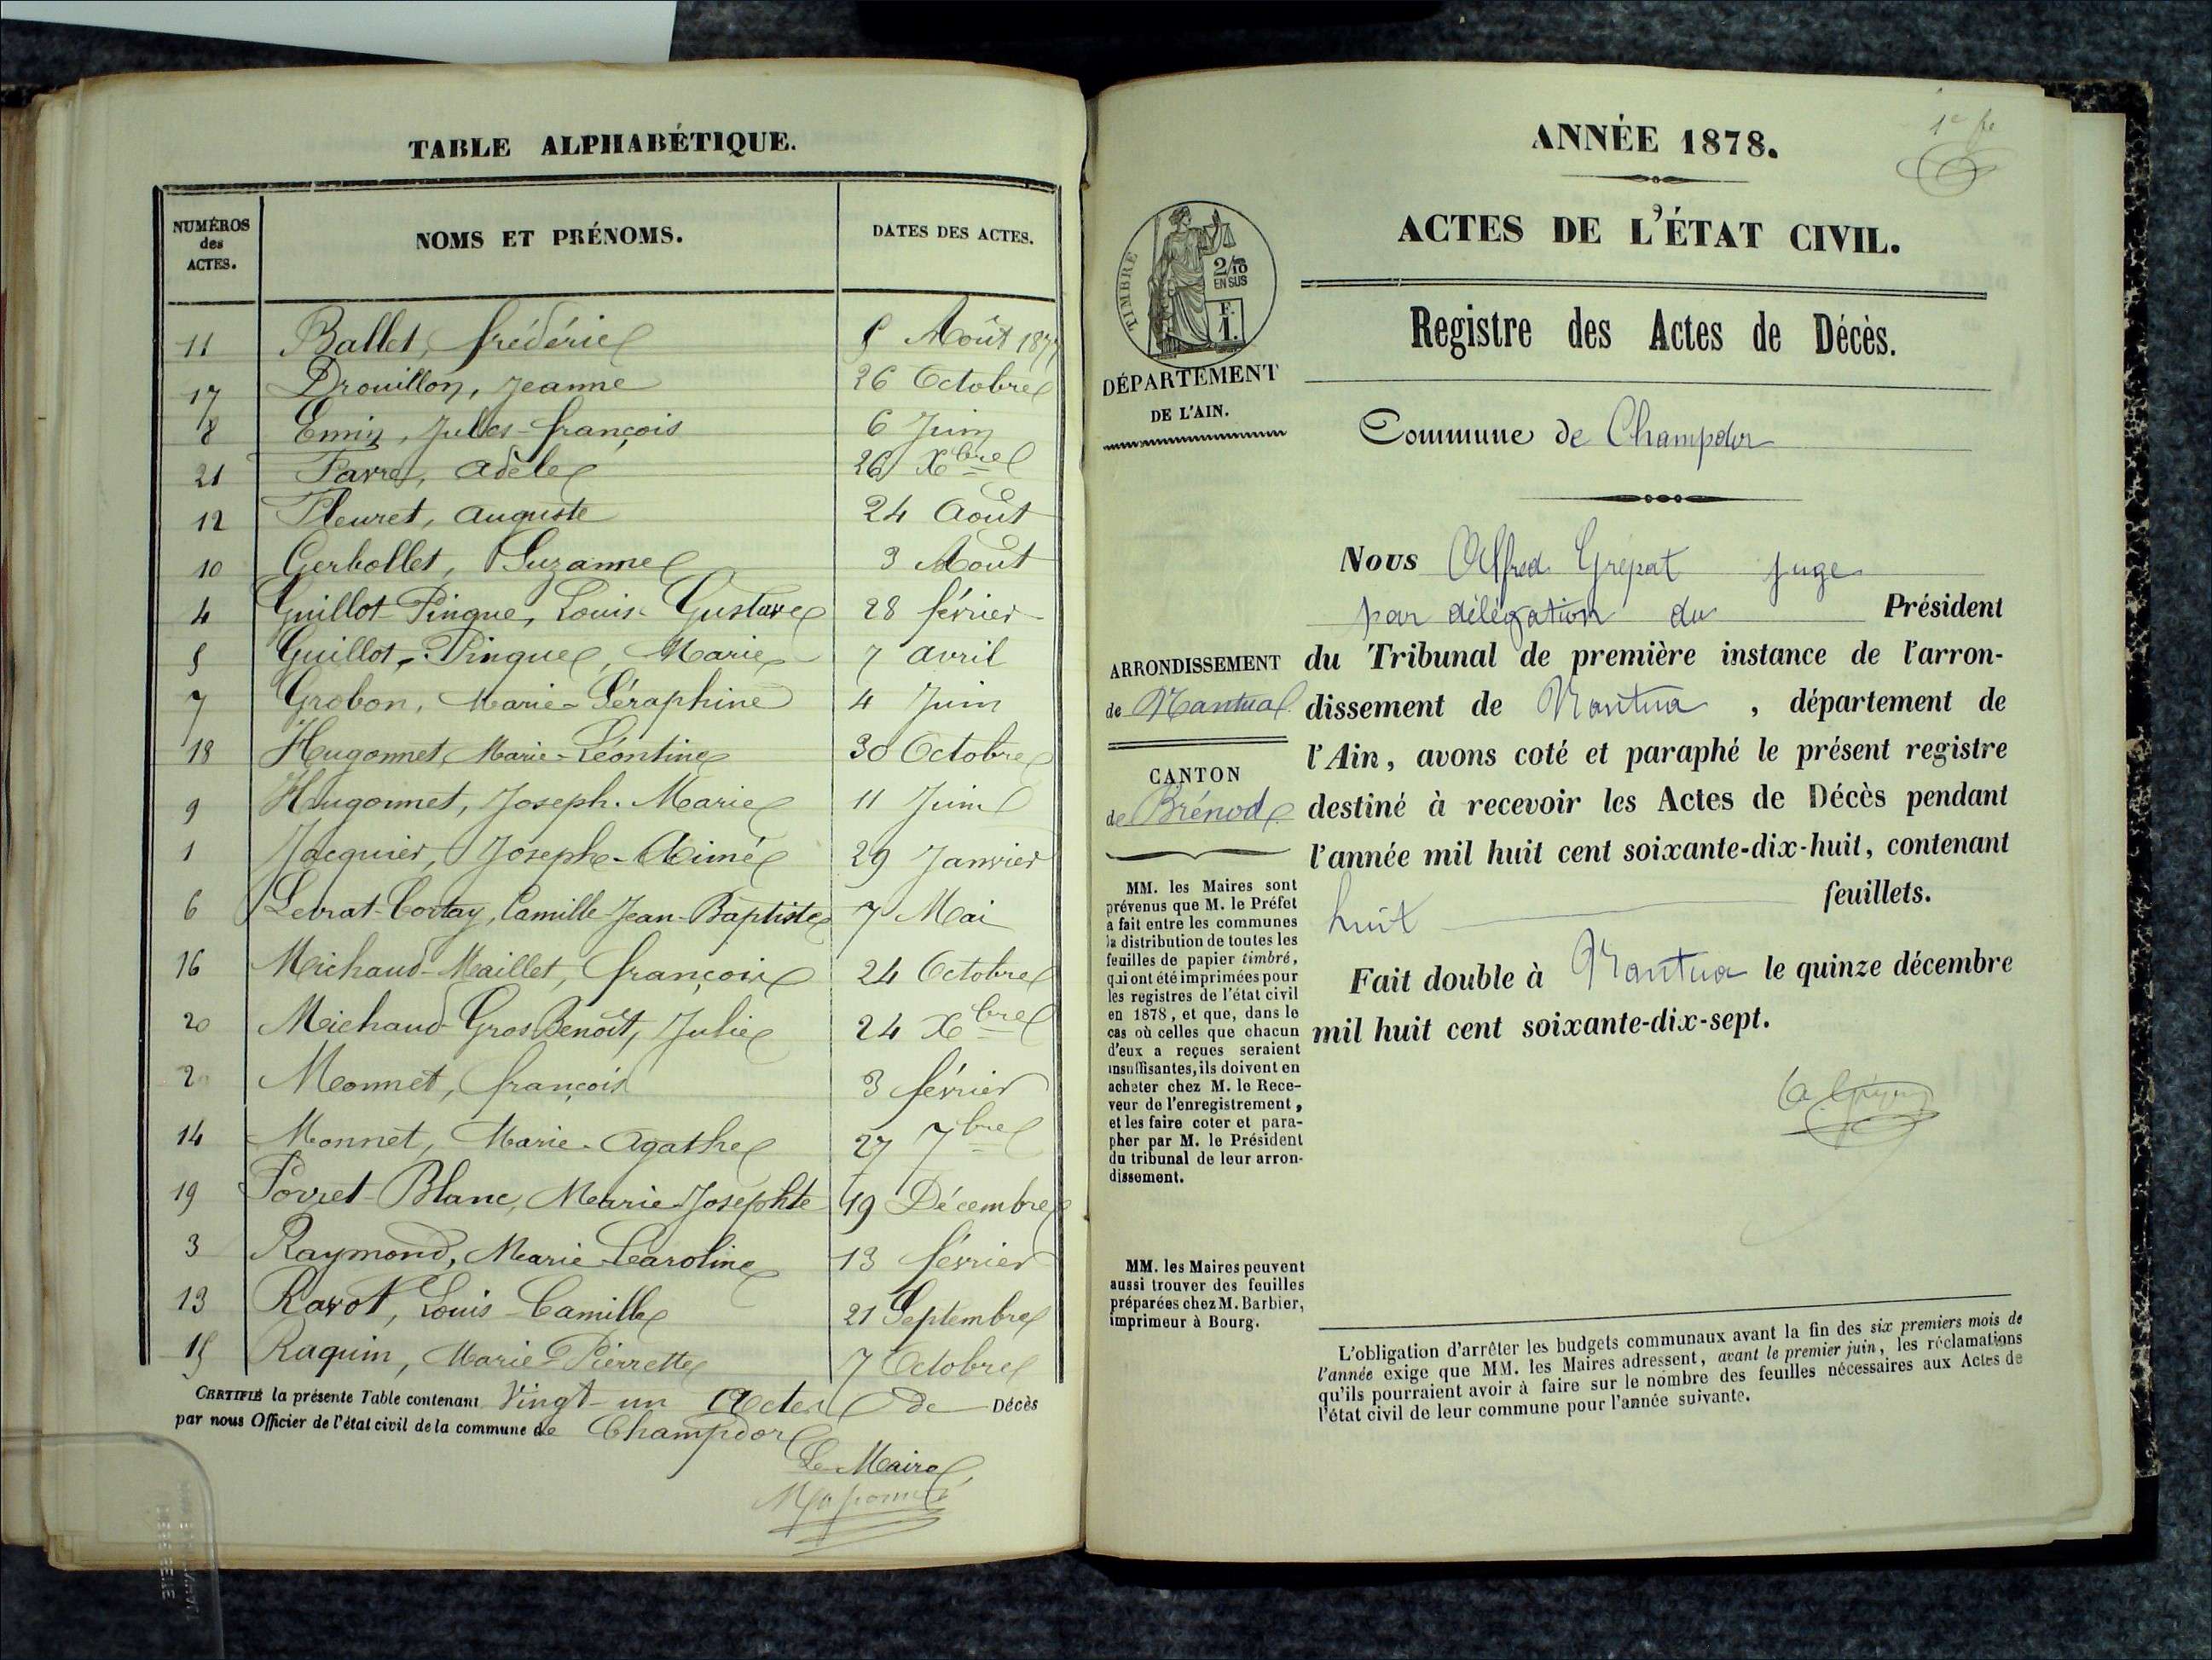 TABLE ALPHABÉTIQUE.
NUMÉROS des ACTES.
NOMS ET PRÉNOMS.
DATES DES ACTES.
11 Ballet, frédéric 5 Août 1877
17 Drouillon, Jeanne 26 Octobre
8 Emin, Jules-françois 6 Juin
21 Favre, adèle 26 Xbre
12 Fleuret, auguste 24 août
10 Gerbollet, Suzanne 3 Août
4 Guillot-Pingue, Louis-Gustave 28 février
5 Guillot-Pingue, Marie 7 avril
7 Grobon, Marie-Séraphine 4 Juin
18 Hugonnet, Marie-Léontine 30 Octobre
9 Hugonnet, Joseph-Marie 11 Juin
1 Jacquier, Joseph-Aimé 29 Janvier
6 Levrat-Cortay, Camille-Jean-Baptiste 7 Mai
16 Michaud-Maillet, françois 24 Octobre
20 Michaud-Gros Benoît, Julie 24 Xbre
2 Monnet, françois 3 février
14 Monnet, Marie-Agathe 27 7bre
19 Porret-Blanc, Marie Josephte 19 Décembre
3 Raymond, Marie Caroline 13 février
13 Ravot, Louis-Camille 21 Septembre
15 Ruquin, Marie-Pierrette 7 Octobre
CERTIFIÉ la présente Table contenant Vingt-un Actes de Décès
par nous Officier de l'état civil de la commune de Champdor
Le Maire,
ANNÉE 1878.
ACTES DE L'ÉTAT CIVIL.
TIMBRE
2/10
EN SUS
F.
1.
DÉPARTEMENT
DE L'AIN.
Registre des Actes de Décès.
Commune de Champdor
Nous Alfred Grépat juge
par délégation du Président
du Tribunal de première instance de l'arron-
dissement de Nantua, département de
l'Ain, avons coté et paraphé le présent registre
destiné à recevoir les Actes de Décès pendant
l'année mil huit cent soixante-dix-huit, contenant
huit feuillets.
Fait double à Nantua le quinze décembre
mil huit cent soixante-dix-sept.
ARRONDISSEMENT
de Nantua
CANTON
de Brénod
MM. les Maires sont
prévenus que M. le Préfet
a fait entre les communes
la distribution de toutes les
feuilles de papier timbré,
qui ont été imprimées pour
les registres de l'état civil
en 1878, et que, dans le
cas où celles que chacun
d'eux a reçues seraient
insuffisantes, ils doivent en
acheter chez M. le Rece-
veur de l'enregistrement,
et les faire coter et para-
pher par M. le Président
du tribunal de leur arron-
dissement.
MM. les Maires peuvent
aussi trouver des feuilles
préparées chez M. Barbier,
imprimeur à Bourg.
L'obligation d'arrêter les budgets communaux avant la fin des six premiers mois de
l'année exige que MM. les Maires adressent, avant le premier juin, les réclamations
qu'ils pourraient avoir à faire sur le nombre des feuilles nécessaires aux Actes de
l'état civil de leur commune pour l'année suivante.